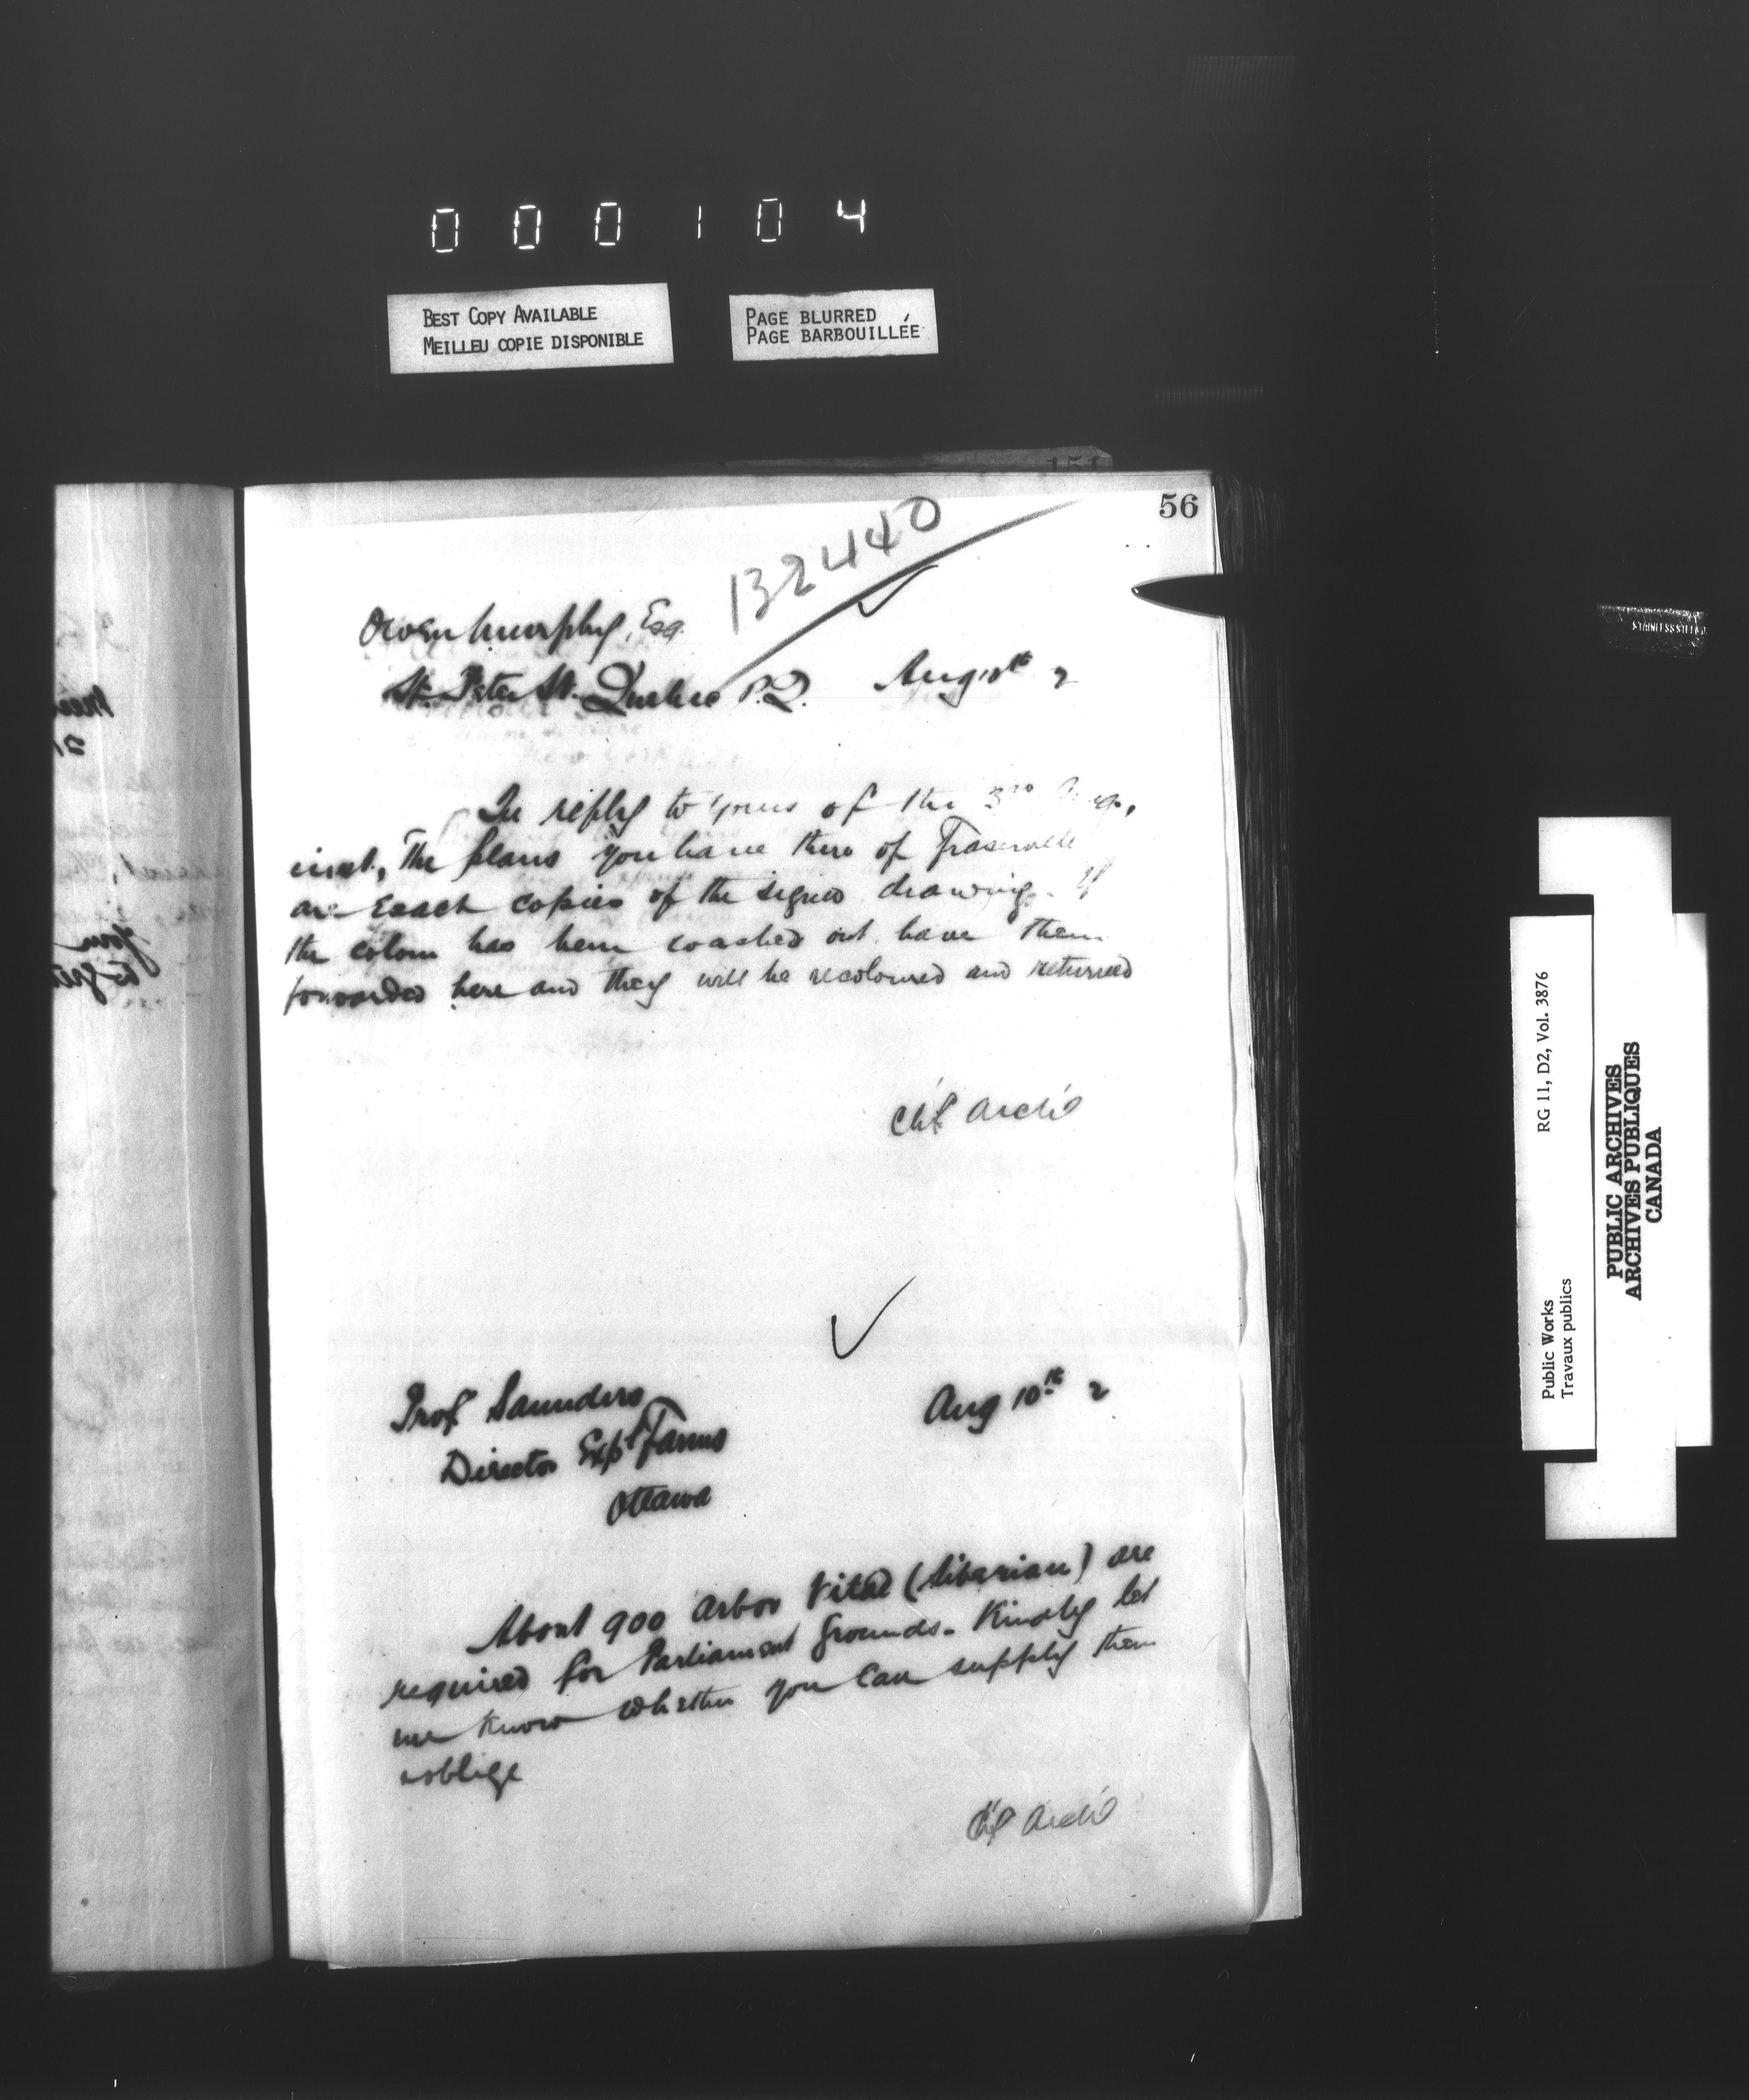 000104
BEST COPY AVAILABLE
MEILLEU COPIE DISPONIBLE
PAGE BLURRED
PAGE BARBOUILLÉE
151
56
132440
Owen Murphy, Esq.
St. Peter St. Quebec P.Q. Aug 10th 2
In reply to yours of the 3rd Aug,
inst, The plans you have there of Fraserville
are exact copies of the signed drawing. If
the colour has been washed out have them
forwarded here and they will be recoloured and returned
Chf Archt
Prof Saunders
Aug 10th 2
Director Expl Farms
Ottawa
About 900 Arbor Vitae (Siberian) are
required for Parliament Grounds. Kindly let
me know whether you can supply them
& oblige
Chf Archt
STAINLESS STEEL
Public Works
Travaux publics
RG 11, D2, Vol. 3876
PUBLIC ARCHIVES
ARCHIVES PUBLIQUES
CANADA